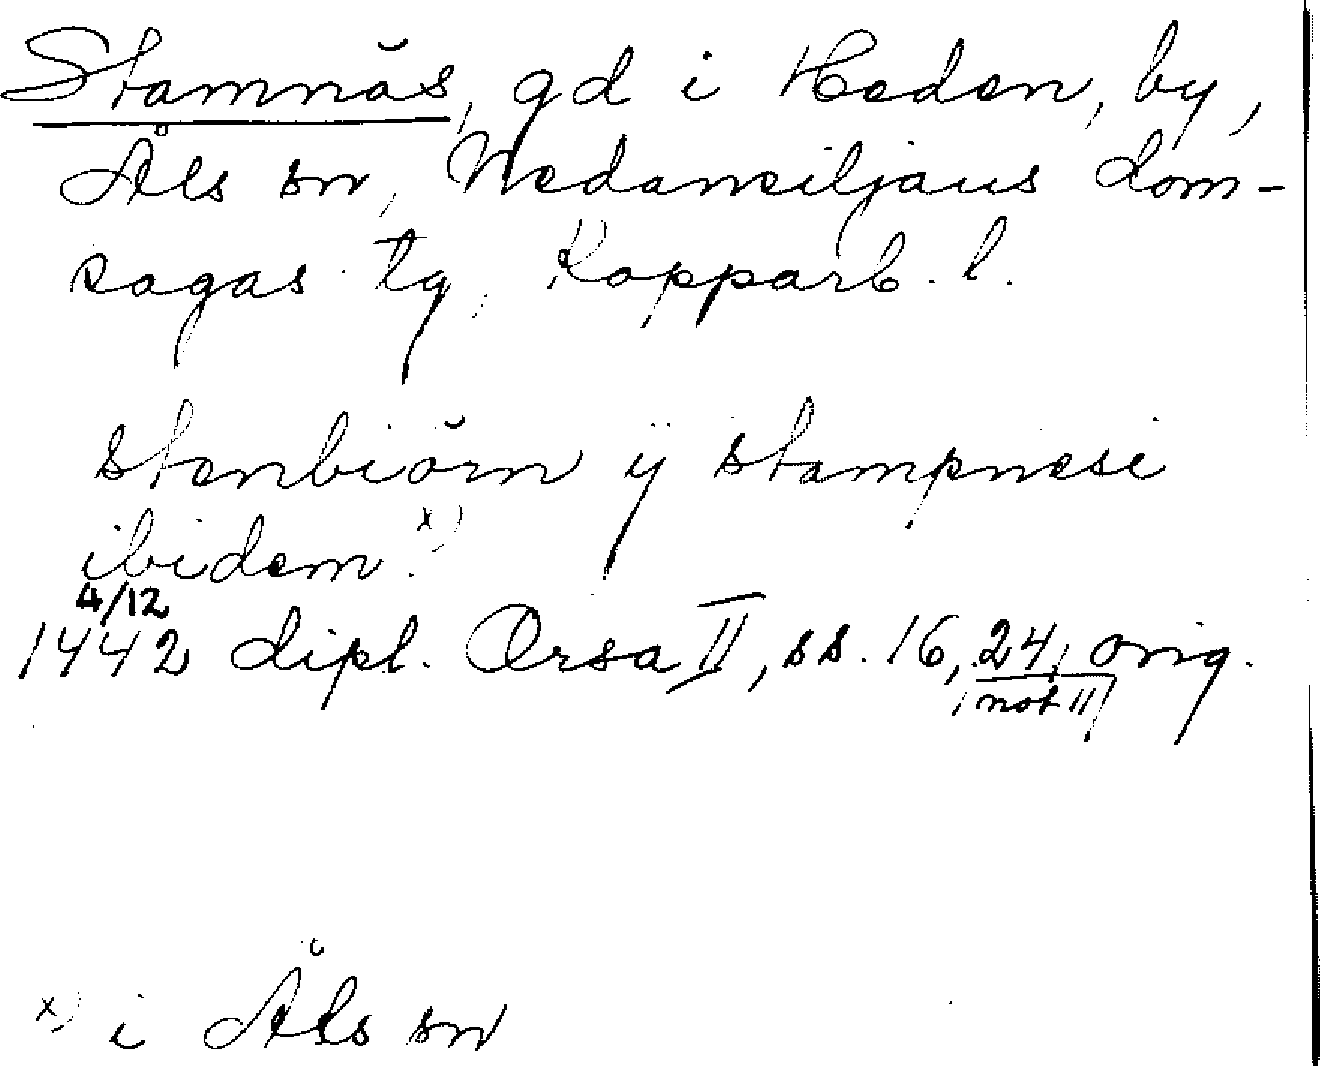 Stamnäs, gd i Heden, by,
Åls sn, Nedansiljans dom-
sagas tg, Kopparb. l.
stenbiörn ÿ stampnesi
ibidem. x)
4/12
1442 dipl. Orsa II, ss. 16, 24, orig.
not 11
x) i Åls sn